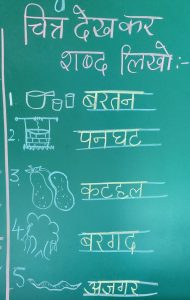 चित्र देखकर
शब्द लिखो:-
1. बरतन
2. पनघट
3. कटहल
4. बरगद
5. अजगर